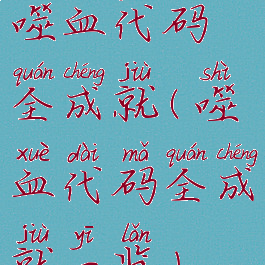 噬血代码
quán chéng jiù shì
全成就(噬
xuè dài mǎ quán chéng
血代码全成
jiù yī lǎn
就一览)